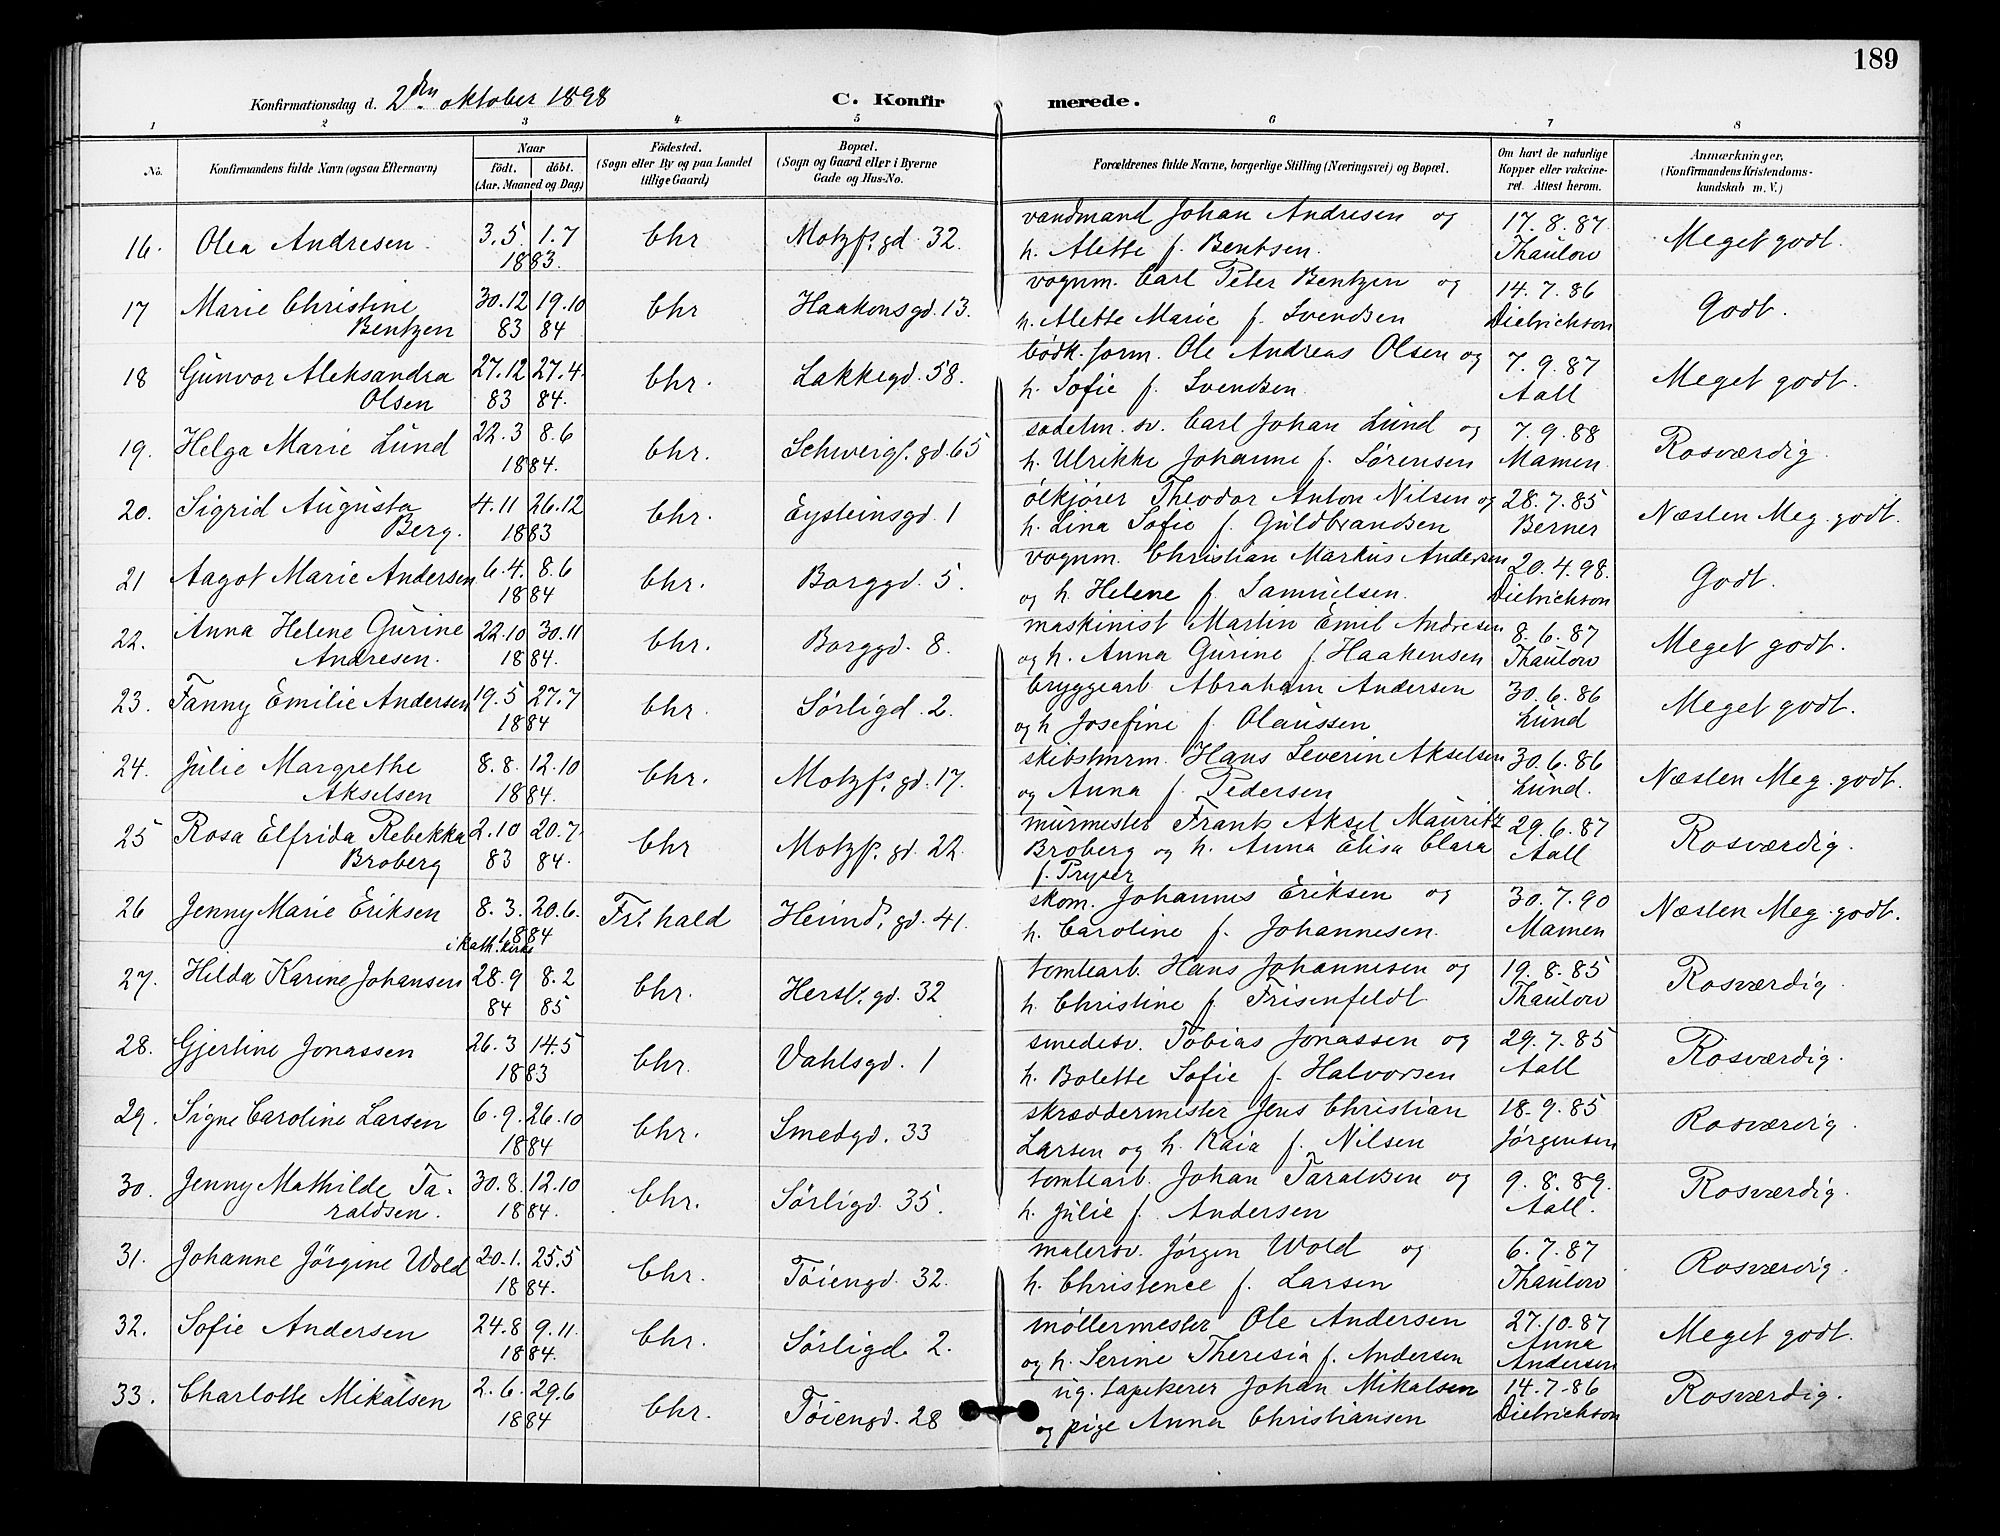 189
Konfirmationsdag d. 2den oktober 1898
C. Konfirmerede.
1 2 3 4 5 6 7 8
No.
Konfirmandens fulde Navn (ogsaa Efternavn)
Naar
födt. döbt.
(Aar, Maaned og Dag)
Födested.
(Sogn eller By og paa Landet
tillige Gaard)
Bopæl.
(Sogn og Gaard eller i Byerne
Gade og Hus-No.
Forældrenes fulde Navne, borgerlige Stilling (Næringsvei) og Bopæl.
Om havt de naturlige
Kopper eller vakcine-
ret. Attest herom.
Anmærkninger.
(Konfirmandens Kristendoms-
kundskab m. V.)
16. Olea Andresen. 3.5. 1.7 Chr Motzf. gd. 32. vandmand Johan Andresen og 17.8.87 Meget godt.
1883. h. Alette f. Bentsen. Thaulow
17 Marie Christine 30.12 19.10 Chr Haakonsgd. 13. vognm. Carl Peter Bentzen og 14.7.86 Godt.
Bentzen 83 84 h. Alette Marie f. Svendsen Dietrichson
18 Gunvor Aleksandra 27.12 27.4. Chr. Lakkegd. 58. bödk. form. Ole Andreas Olsen og 7.9.87 Meget godt.
Olsen 83 84. h. Sofie f. Svendsen. Aall
19. Helga Marie Lund 22.3 8.6 Chr. Schweigs. gd. 65 sadelm. sv. Carl Johan Lund og 7.9.88 Rosværdig.
1884. h. Ulrikke Johanne f. Sørensen Mamen.
20. Sigrid Augusta 4.11 26.12 Chr. Eysteinsgd. 1 ölkjörer Theodor Anton Nilsen og 28.7.85 Næsten Meg. godt.
Berg. 1883 h. Lina Sofie f. Guldbrandsen Berner
21 Aagot Marie Andersen 6.4. 8.6 Chr. Borggd. 5. vognm. Christian Markus Andersen 20.4.98. Godt.
1884 og h. Helene f. Samuelsen. Dietrichson
22. Anna Helene Gurine 22.10 30.11 Chr. Borggd. 8. maskinist Martin Emil Andresen 8.6.87 Meget godt.
Andresen. 1884. og h. Anna Gurine f. Haakensen Thaulow
23. Fanny Emilie Andersen 19.5 27.7 Chr. Sørligd. 2. bryggearb. Abraham Andersen 30.6.86 Meget godt.
1884 og h Josefine f. Olaussen Lund
24. Julie Margrethe 8.8. 12.10 Chr. Motzfs. gd. 17. skibstmrm. Hans Severin Akselsen 30.6.86 Næsten Meg. godt.
Akselsen 1884. og Anna f. Pedersen Lund.
25 Rosa Elfrida Rebekka 2.10 20.7 Chr Motzfs. gd. 22. murmester Frank Aksel Mauritz 29.6.87 Rosværdig.
Broberg 83 84. Broberg og h. Anna Elisa Clara Aall
f. Pryser
26 Jenny Marie Eriksen 8.3. 20.6. Fr. hald Heimd. gd. 41. skom. Johannes Eriksen og 30.7.90 Næsten Meg. godt.
1884 h. Caroline f. Johannesen. Mamen
i kath. kirke
27. Hilda Karine Johansen 28.9 8.2 Chr. Hersl. gd. 32 tomtearb. Hans Johannesen og 19.8.85 Rosværdig.
84 85 h. Christine f. Frisenfeldt Thaulow
28. Gjertine Jonassen 26.3 14.5 Chr. Vahlsgd. 1 smedesv. Tobias Jonassen og 29.7.85 Rosværdig.
1883 h. Bolette Sofie f. Halvorsen Aall
29. Signe Caroline Larsen 6.9. 26.10 Chr. Smedgd. 33 skræddermester Jens Christian 18.9.85 Rosværdig.
1884 Larsen og h. Kaia f. Nilsen Jørgensen
30. Jenny Mathilde Ta- 30.8. 12.10 Chr. Sørligd. 35. tomtearb. Johan Taraldsen og 9.8.89. Rosværdig.
raldsen. 1884. h. Julie f. Andersen Aall.
31. Johanne Jørgine Wold 20.1. 25.5 Chr. Töiengd. 32. malersv. Jørgen Wold og 6.7.87 Rosværdig.
1884. h. Christence f. Larsen Thaulow
32. Sofie Andersen 24.8 9.11. Chr. Sørligd. 2. møllermester Ole Andersen 27.10.87 Meget godt.
1884. og h. Serine Theresia f. Andersen Anna
Andersen
33. Charlotte Mikalsen 2.6. 29.6 Chr. Töiengd. 28 ug. tapetserer Johan Mikalsen 14.7.86 Rosværdig.
1884 og pige Anna Christiansen Dietrichson